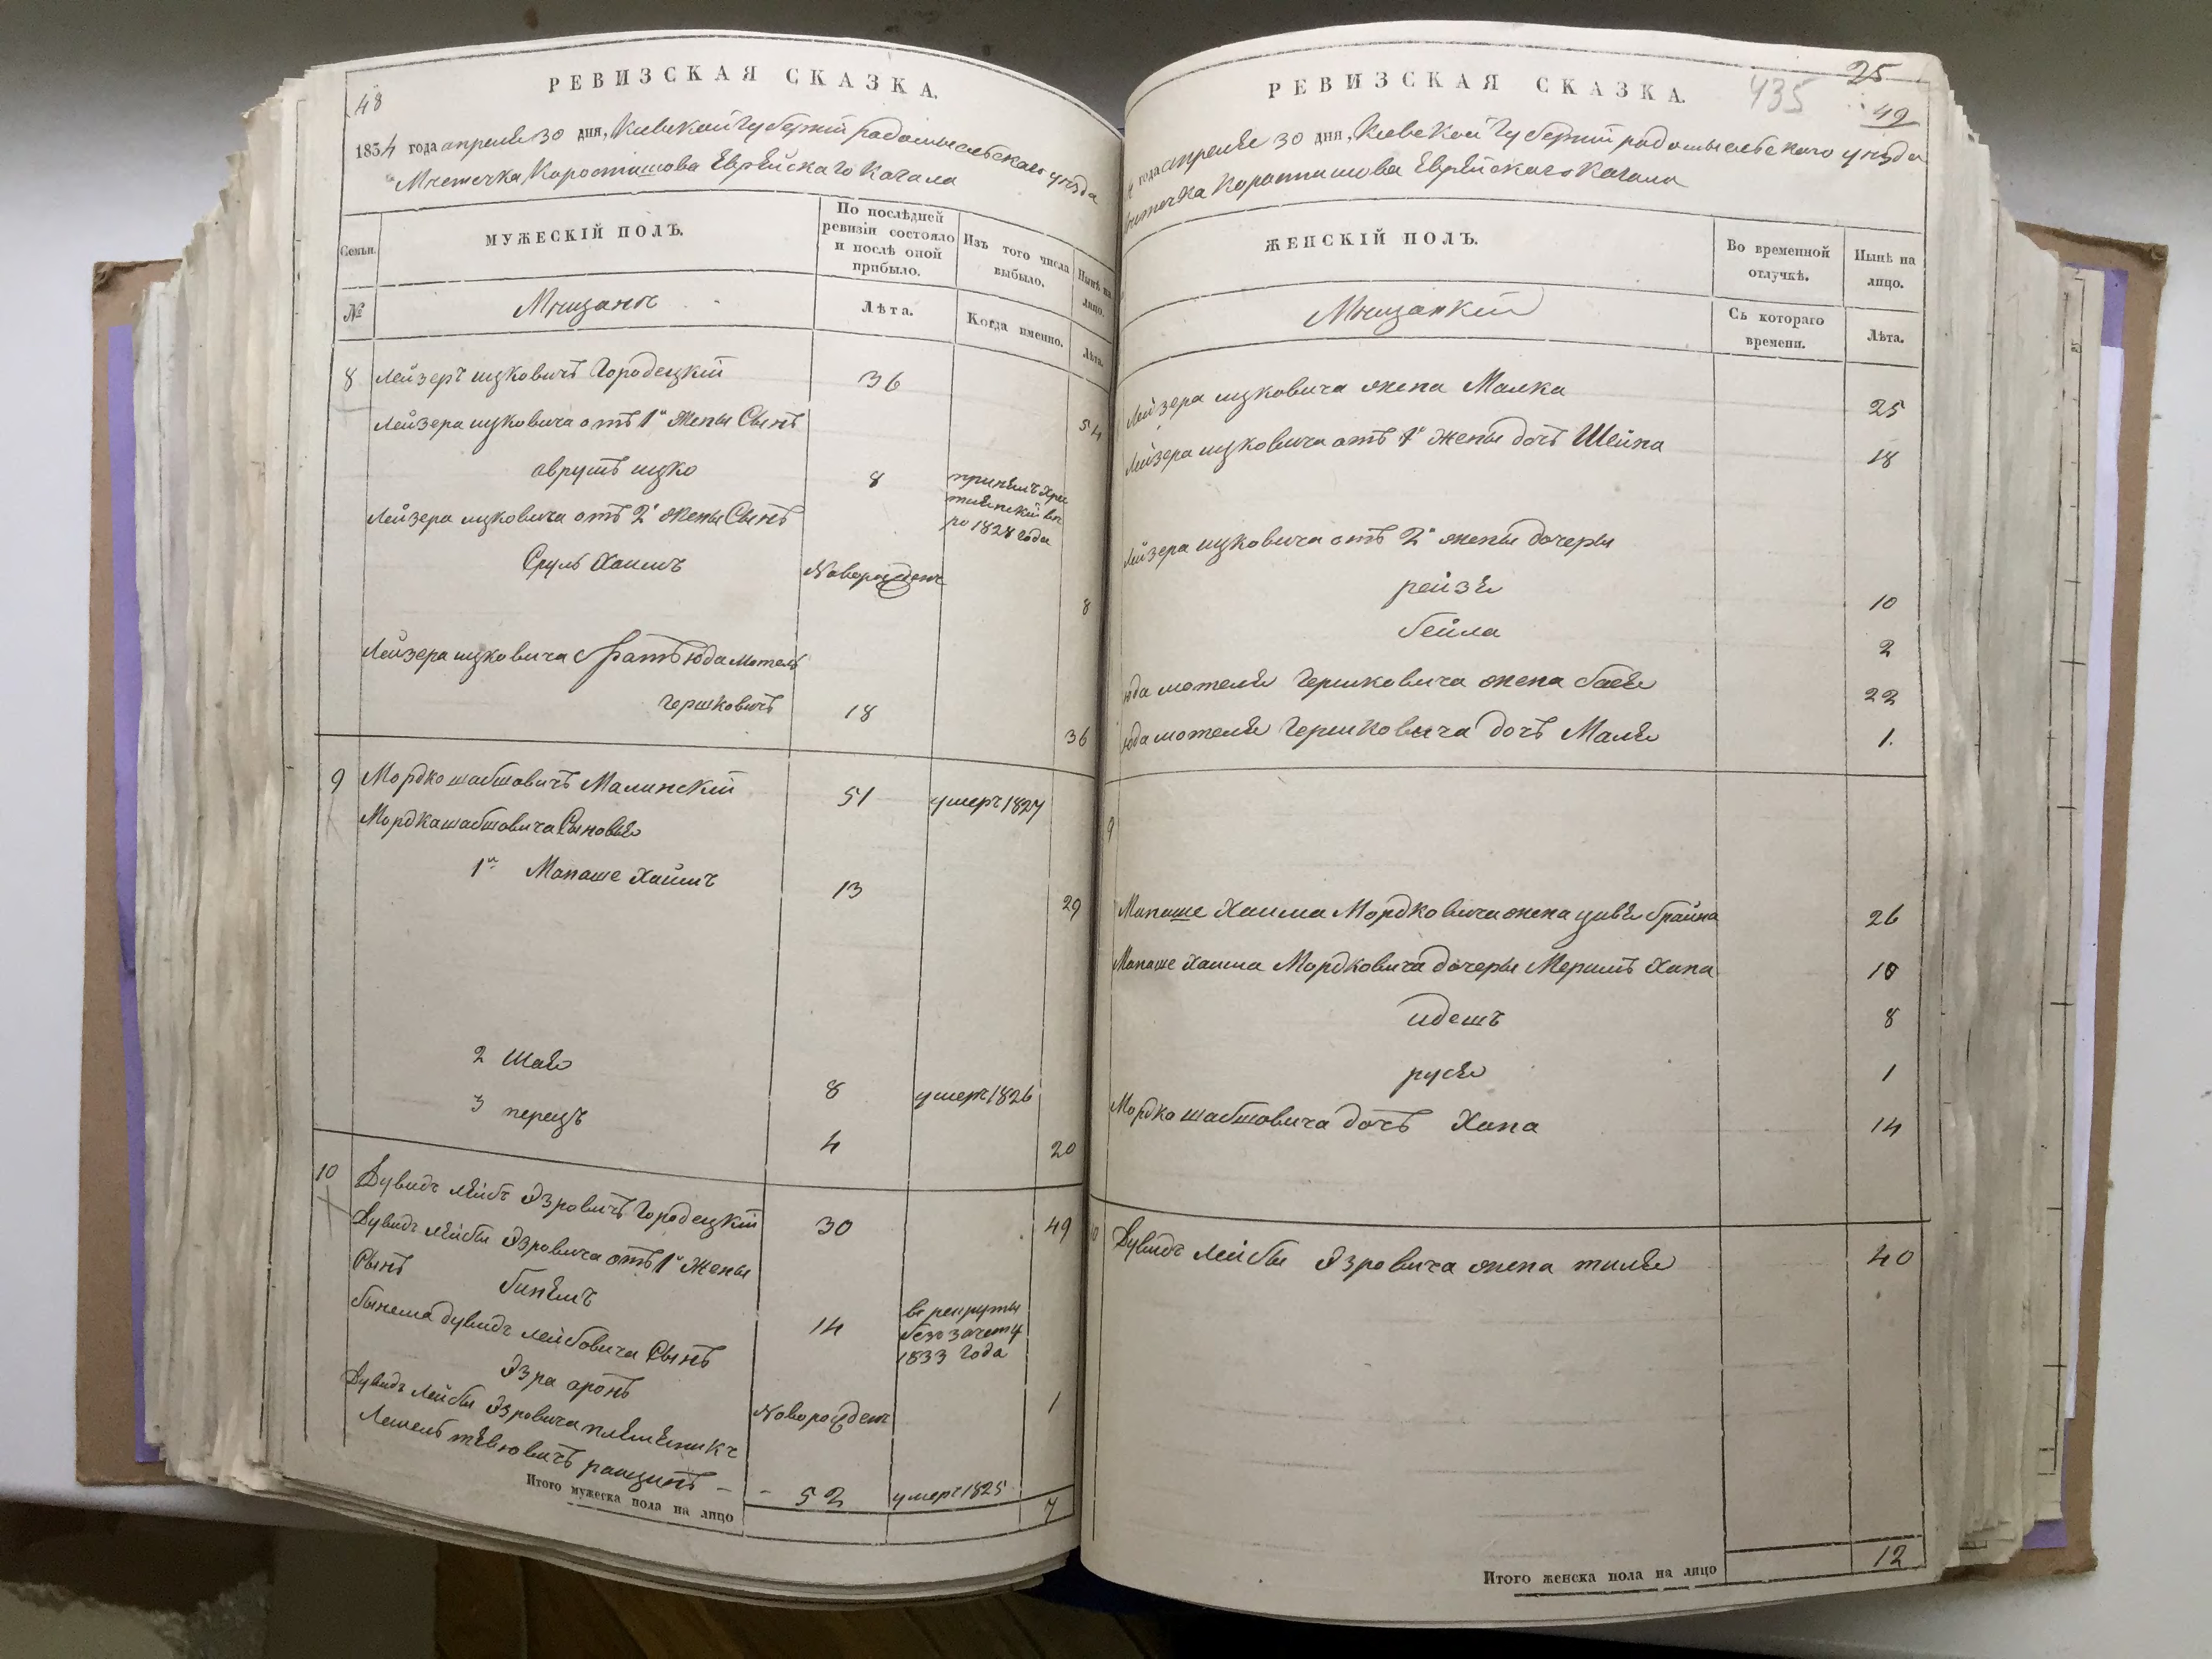 48
РЕВИЗСКАЯ СКАЗКА.
1834 года апреля 30 дня, Киевской Губернии радомысльскаго уезда
Местечка Коростишова Еврейскаго Кагала
Семьи.
МУЖЕСКІЙ ПОЛЪ.
По послѣдней ревизіи состояло и послѣ оной прибыло.
Изъ того числа выбыло.
Нынѣ на лицо.
№
Мещане
Лѣта.
Когда именно.
Лѣта.
8 Лейзеръ ицковичъ Городецкій 36 54
Лейзера ицковича отъ 1й Жены Сынъ
аврумъ ицко 8
1828 года
Лейзера ицковича отъ 2й жены Сынъ
Сруль Хаимъ Новорожденъ 8
Лейзера ицковича братъ юда мотель
Гершковичъ 18 36
9 Мордко шабшовичъ Малинскій 51 умеръ 1827
Мордка шабшовича Сыновья
1й Манаше Хаимъ 13 29
2 Шая 8 умеръ 1826
3 перецъ 4 20
10 Дувидъ лейбъ Эзровичъ Городецкій 30 49
Дувидъ лейбы Эзровича отъ 1й Жены
Сынъ бинемъ 14 в рекруты без зачету 1833 года
бинема дувидъ лейбовича Сынъ
Эзра аронъ Новорожденъ 1
Дувидъ Лейбы Эзровича племеникъ
52 умеръ 1825
Итого мужеска пола на лицо 7
25
435
49
РЕВИЗСКАЯ СКАЗКА.
года апреля 30 дня, Киевской Губернии радомысльскаго уезда
Коростишова Еврейскаго Кагала
ЖЕНСКІЙ ПОЛЪ.
Во временной отлучкѣ.
Нынѣ на лицо.
Мещанки
Съ котораго времени.
Лѣта.
Лейзера ицковича жена Малка 25
Лейзера ицковича отъ 1й жены дочь Шейна 18
Лейзера ицковича отъ 2й жены дочеры
рейзя 10
бейла 2
юда мотеля Гершковича жена бася 22
юда мотеля Гершковича дочь Маля 1.
9
Манаше Хаима Мордковича жена цивя брайна 26
Манаше Хаима Мордковича дочеры Меримъ Хана 10
идешъ 8
руся 1
Мордко шабшовича дочь Хана 14
10 Дувидъ Лейбы Эзровича жена тиля 40
Итого женска пола на лицо 12